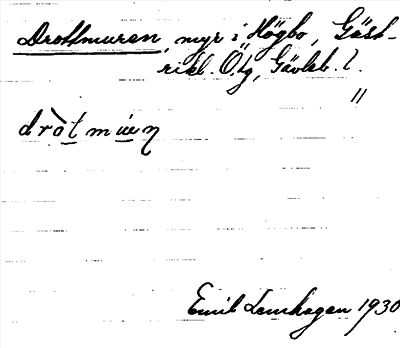 Drottmuren, myr i Högbo, Gäst-
rikl. Ö. tg, Gävleb. l.
"
dròt mu̇en
Emil Lamhagen 1930